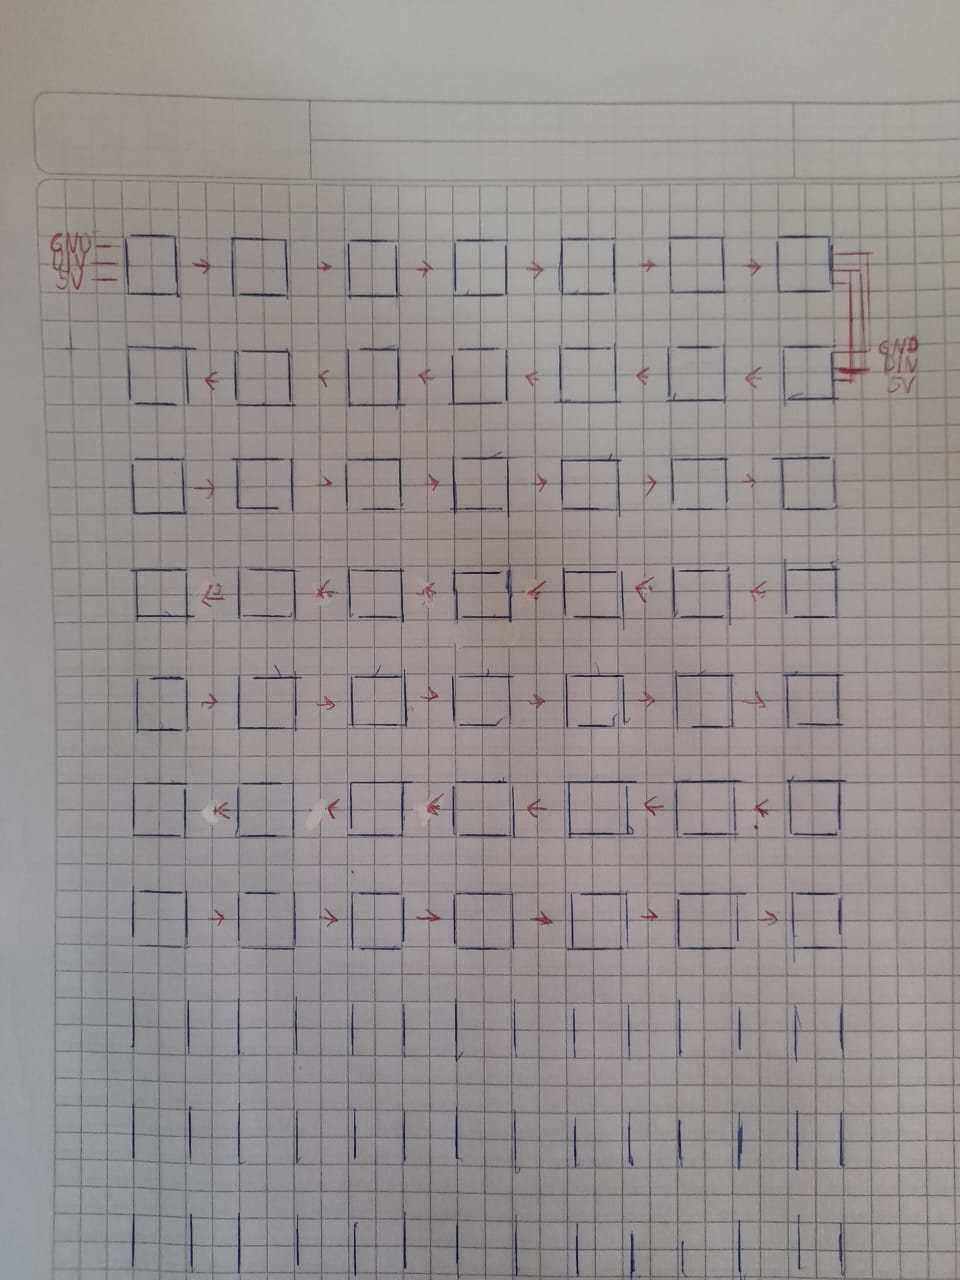 GND
DIN
5V
GND
DIN
5V